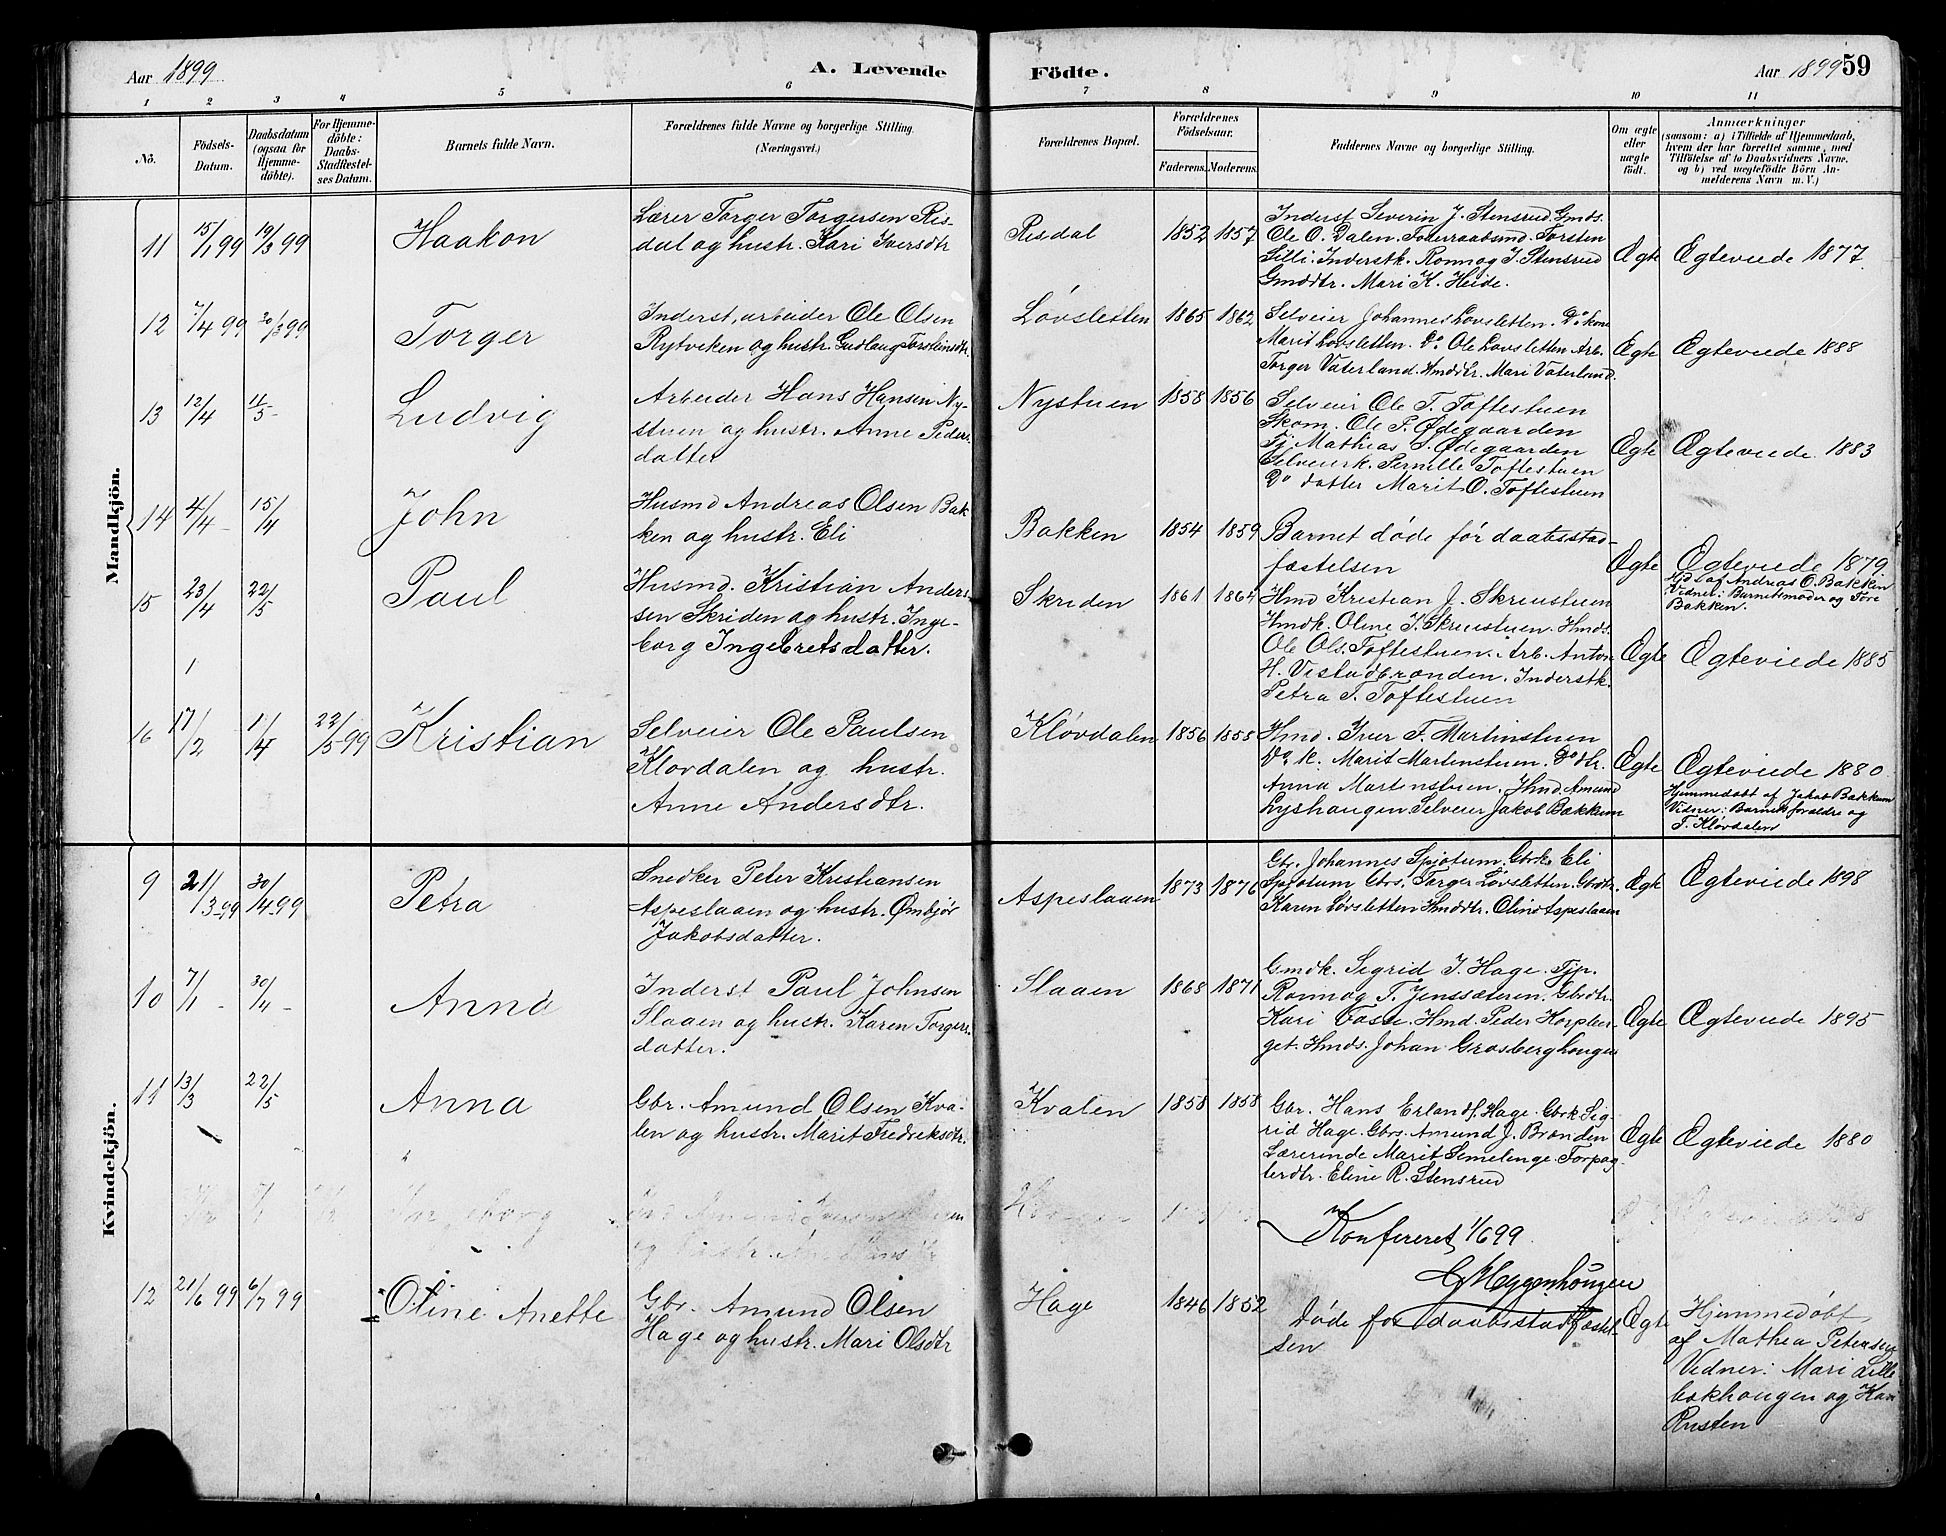 Aar 1899. A. Levende Födte. Aar 1899 59
1 2 3 4 5 6 7 8 9 10 11
No.
Födsels-
Datum.
Daabsdatum
(ogsaa for
Hjemme-
döbte).
For Hjemme-
döbte:
Daabs-
Stadfæstel-
ses Datum.
Barnets fulde Navn.
Forældrenes fulde Navne og borgerlige Stilling.
(Næringsvei.)
Forældrenes Bopæl.
Forældrenes
Födselsaar.
Faderens. Moderens.
Faddernes Navne og borgerlige Stilling.
Om ægte
eller
uægte
födt.
Anmærkninger
(saasom: a) i Tilfælde af Hjemmedaab,
hvem der har forrettet samme, med
Tilföielse af to Daabsvidners Navne.
og b) ved uegtefödte Börn An-
melderens Navn m. V.)
Mandkjön.
11 15/1 99 19/3 99 Haakon
Lærer Torger Torgersen Ris-
dal og hustr. Kari Iversdtr
Risdal 1852 1857
Inderst Severin J. Stensrud. Gmds.
Ole O. Dalen. Foderraadsmd. Torsten
Lilli. Inderstk. Ronnog J. Stensrud
Gmddtr. Mari K. Heide.
Ægte Ægteviede 1877.
12 7/4 99 30/3 99 Torger
Inderst, arbeider Ole Olsen
Rytveken og hustr. Gudlaug Torsteinsdtr.
Løvsletten 1865 1862
Selveier Johannes Lovsletten. Do kone
Marit Lovsletten. Do Ole Lovsletten Arb.
Torger Vaterland. Hmddtr. Mari Vaterland.
Ægte Ægteviede 1888
13 12/4 11/5 - Ludvig
Arbeider Hans Hansen Ny-
stuen og hustr. Anne Peders-
datter
Nystuen 1858 1856
Selveier Ole T. Toftestuen
Skom. Ole P. Ødegaarden
Tj. Mathias S. Ødegaarden
Selveierk. Pernille Toftestuen
Do datter Marit O. Toftestuen
Ægte Ægteviede 1883
14 4/4 - 15/4 John
Husmd Andreas Olsen Bak-
ken og hustr. Eli
Bakken 1854 1859
Barnet døde før daabsstad-
fæstelsen
Ægte Ægteviede 1879
Hjd. af Andreas O. Bakken
Vidner: Barnetsmoder og Tore
Bakken.
15 23/4 22/5 Paul
Husmd. Kristian Anders-
sen Skriden og hustr. Inge-
borg Ingebretsdatter.
Skriden 1861 1864
Hmd Kristian J. Skrenstuen
Hmdk. Oline J. Skrenstuen. Hmds.
Ole Ols. Toftestuen. Arb. Anton
H. Vistadbrænden. Inderstk.
Petra T. Toftestuen
Ægte Ægteviede 1885
16 17/2 1/4 22/5 99 Kristian
Selveier Ole Paulsen
Klovdalen og hustr.
Anne Andersdtr.
Kløvdalen 1856 1858
Hmd. Iver T. Martinstuen
Do. K. Marit Martenstuen. Do dtr.
Anna Martenstuen. Hmd Amund
Lyshaugen Selveier Jakob Bakkum
Ægte Ægteviede 1880
Hjemmedøbt af Jakob Bakkum
Vidner: Barnets forældre og
T. Kløvdalen
Kvindekjön.
9 21/3 99 30/4 99 Petra
Snedker Peter Kristiansen
Aspeslaaen og hustr. Ømbjör
Jakobsdatter.
Aspeslaaen 1873 1876
Gbr. Johannes Spjotum. Gbrk. Eli
Spjotum Gbrs. Torger Løvsletten. Gbrdtr.
Karen Løvsletten Hmddtr. Olina Aspeslaaen
Ægte Ægteviede 1898
10 7/1 - 30/4 - Anna
Inderst Paul Johnsen
Slaaen og hustr. Karen Torgers-
datter.
Slaaen 1868 1871
Gmdk. Sigrid J. Hage. Tjp.
Ronnog T. Jenssæteren. Gbrdtr.
Kari Fosse. Hmd. Peder Korpber-
get. Hmds. Johan Grosberghougen
Ægte Ægteviede 1895
11 13/3 22/5 Anna
Gbr. Amund Olsen Kva-
len og hustr. Marit Fredriksdtr.
Kvalen 1858 1858
Gbr. Hans Erlandf. Hage. Gbrk Sig-
rid Hage. Gbrs. Amund J. Brænden
Lærerinde Marit Semelenge. Forpag-
terdtr. Eline R. Stensrud
Ægte Ægteviede 1880
Konfereret 1/6 99
G Heggenhougen
12 21/6 99 6/7 99 Oline Anette
Gbr. Amund Olsen
Hage og hustr. Mari Olsdtr
Hage 1846 1852
Døde før daabsstadfæstel-
sen
Ægte Hjemmedøbt
af Mathea Petersen
Vidner: Mari Lille-
bakhaugen og Kari
Rusten